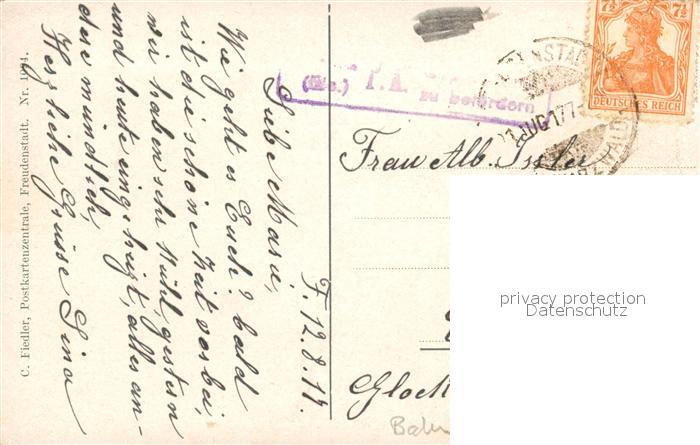 C. Fiedler, Postkartenzentrale, Freudenstadt. Nr. 1094.
F. 12.8.17.
Liebe Marie,
Wie geht es Euch? bald
ist die schöne Zeit vorbei,
wir haben sehr kühl, gestern
und heute eingeheizt, alles an-
dere mündlich,
Herzliche Grüsse Lina
P. A.
zu befördern
AUG 17 7-
7½ 7½
DEUTSCHES REICH
Frau Alb.
Glock
privacy protection
Datenschutz